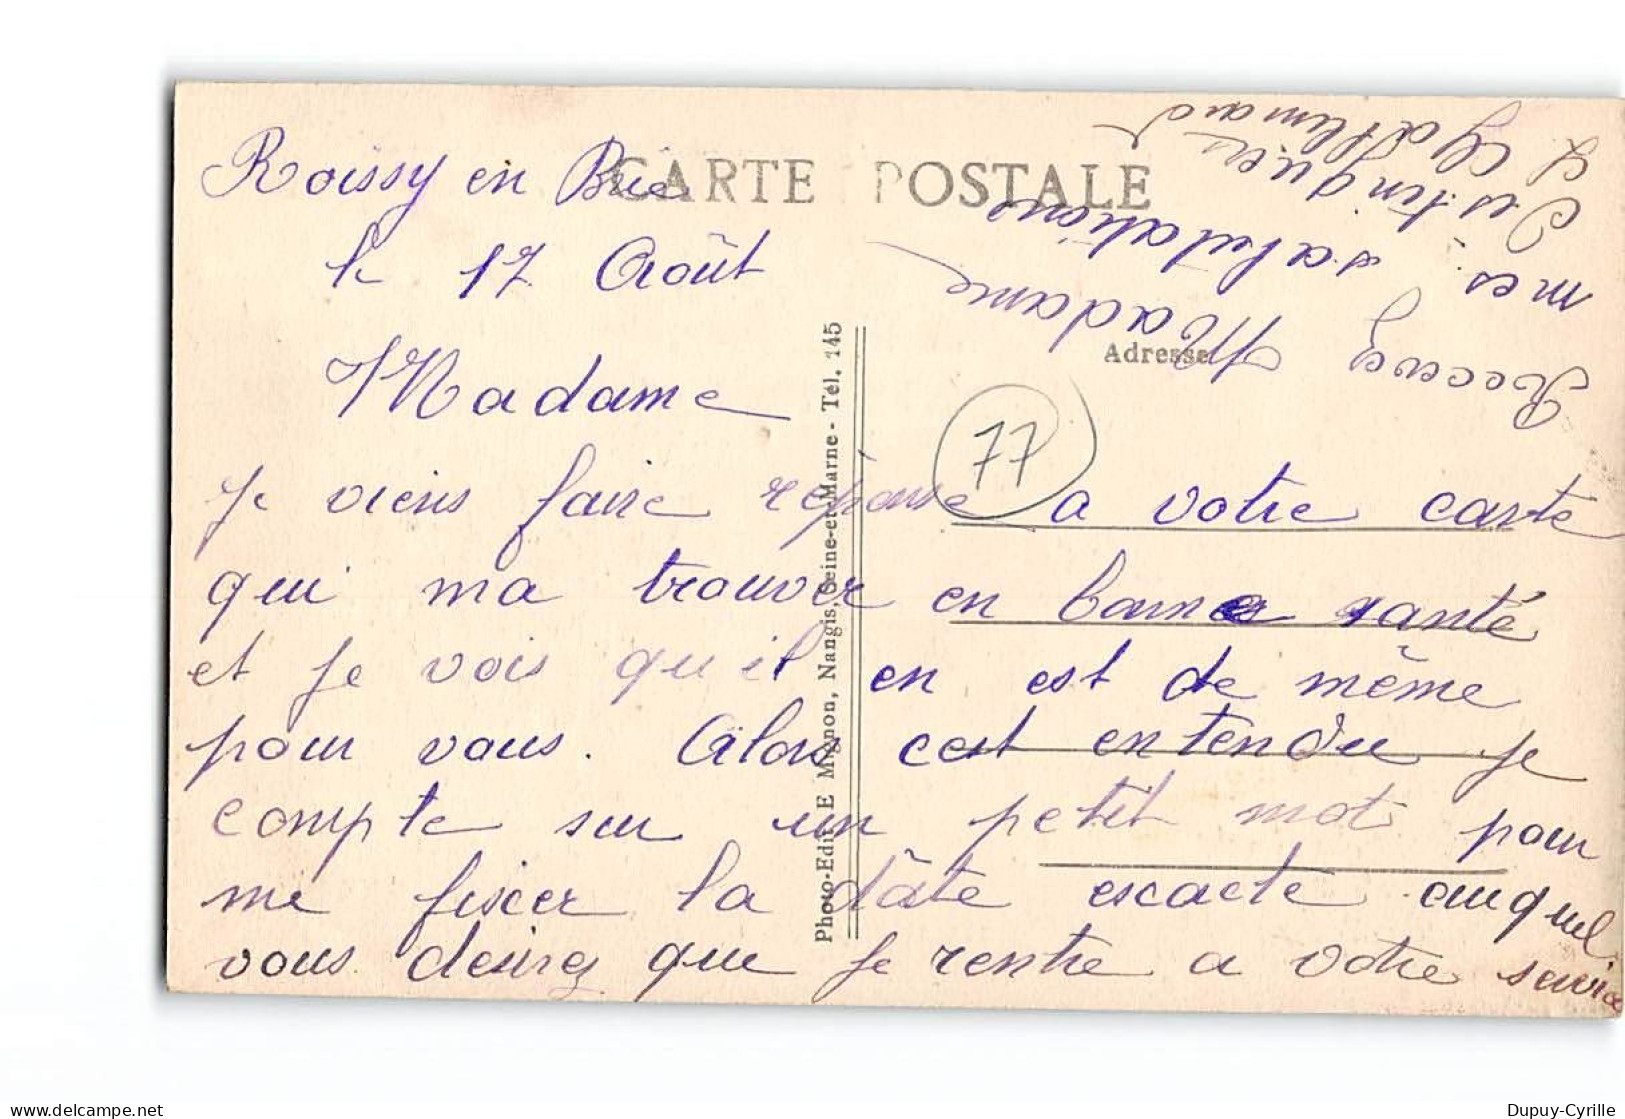 CARTE POSTALE
Roissy en Brie
le 17 Août
Madame
Je viens faire réponse a votre carte
qui ma trouver en bonnes santé
et je vois qu'il en est de même
pour vous. Alors c'est entendu je
compte sur un petit mot pour
me fixer la dâte exacte auquel
vous desirez que je rentre a votre service
Recevez Madame
mes salutations
distinguées
Adresse
77
Photo-Edit. E Mignon, Nangis, Seine-et-Marne - Tél. 145
delcampe.net
Dupuy-Cyrille